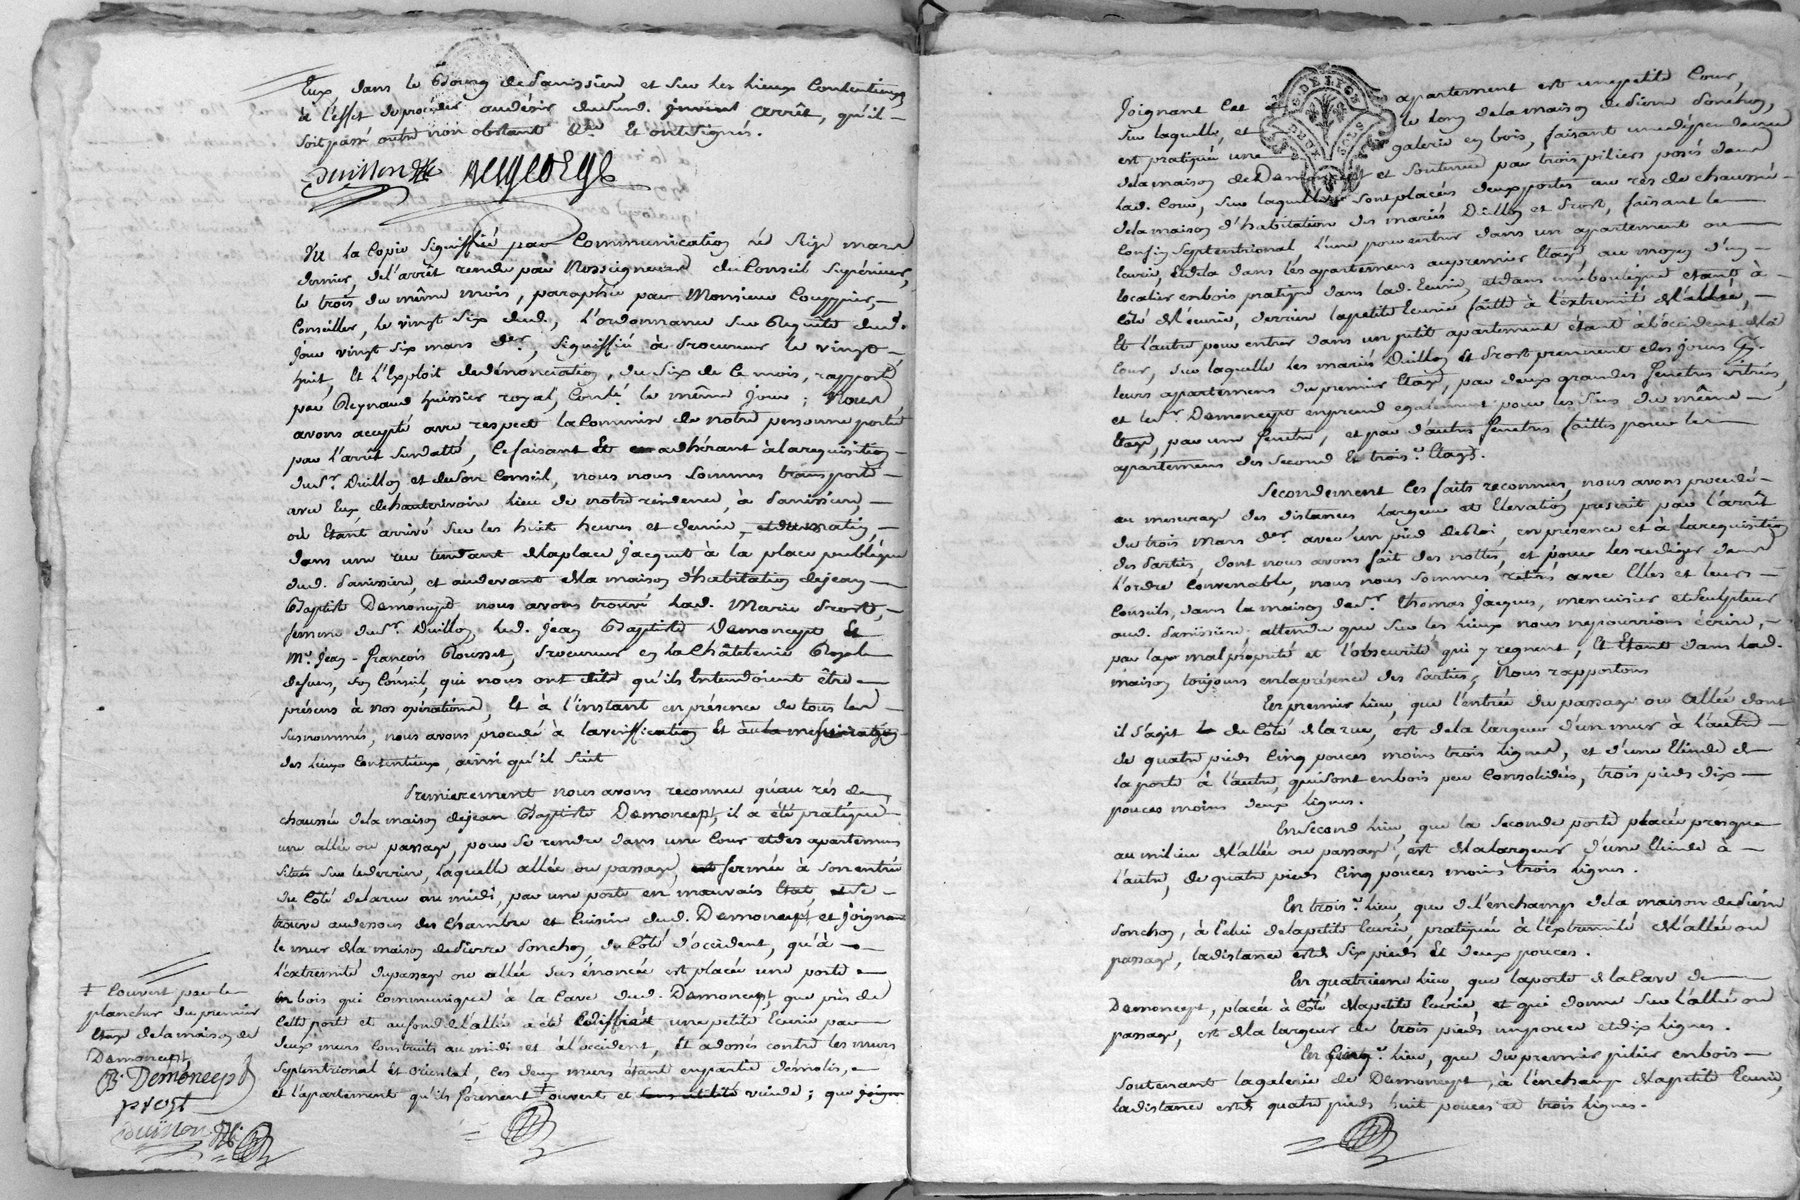 Eux, dans le Bourg de Panissiere, et sur les lieux Contentieux
à l'effet de procéder au désir dudit. arrêt, qu'il
soit passé outre non obstant &c. Et ont signés.
Duillon
Vu la Copie signiffiée par Communication mars
dernier, de l'arrêt rendu par Nosseigneurs du Conseil Supérieur,
le trois du même mois, paraphée par Monsieur
Conseiller, le vingt six dud., l'ordonnance sur Requête dud.
Jour vingt six mars der., signiffiée à Procureur le vingt
huit, Et l'Exploit de dénonciation, du six de ce mois, rapporté
par Reynaud huissier royal, Conté. le même Jour ; Nous
avons accepté avec respect la Commission de notre personne porté
par l'arrêt susdatté, Ce faisant Et adhérant à la requisition
du Sr. Duillon et de son Conseil, nous nous sommes transporté
avec Eux de lieu de notre résidence, à Panissiere,
où Etant arrivé sur les huit heures et demie, du matin,
dans une rue tendant de la place Jacquet à la place publique
dud. Panissiere, et au devant de la maison d'habitation de Jean
Baptiste Demoncept, nous avons trouvé lad. Marie Prost,
femme du Sr. Duillon, led. Jean Baptiste Demoncept, Et
Me. Jean-François Rousset, Procureur en la Châtelenie Royale
de feurs, son Conseil, qui nous ont dits qu'ils Entendoient être
présens à nos opérations, Et à l'instant en présence de tous les
susnommés, nous avons procédé à la vériffication Et à la
des lieux Contentieux, ainsi qu'il suit
Premierement nous avons reconnu qu'au rés de
chaussée de la maison de Jean Baptiste Demoncept, il a été pratiqué
une allée ou passage, pour se rendre dans une Cour et des apartemens
situés sur le derrière, laquelle allée ou passage, fermée à son entrée
du Côté de la rue au midi, par une porte en mauvais Etat, se
trouve au dessous des Chambre et Cuisine dud. Demoncept, et Joignant
le mur de la maison de Pierre Ponchon, du Côté d'occident, qu'à
l'extremité du passage ou allée sus énoncée est placée une porte
en bois qui communique à la Cave dud. Demoncept, que près de
Cette porte et au fond de l'allée a été Ediffiée une petite Ecurie par
deux murs construits au midi et à l'occident, Et adossés contre les murs
Septentrional et Oriental, ces deux murs étant en partie démolis,
et l'apartement qu'ils forment ‡ ouvert et vuide ; que
‡ Couvert par le
plancher du premier
Etage de la maison de
Demoncept,
B. Demoncept
prost
Duillon
Joignant Cet appartement est une petite Cour,
sur laquelle, et le long de la maison de Pierre Ponchon,
est pratiquée une galerie en bois, faisant une dépendance
de la maison de Demoncept et soutenue par trois piliers posés dans
lad. Cour, sur laquelle sont placées deux portes au rés de chaussée
de la maison d'habitation des mariés Duillon et Prost, faisant le
Confin Septentrional l'une pour entrer dans un apartement ou
Ecurie, Et de la dans les apartemens au premier Etage, au moyen d'un
Escalier en bois pratiqué dans lad. Ecurie, et dans une boutique etant à
Côté de l'ecurie, derriere la petite Ecurie faitte à l'extremité de l'allée,
Et l'autre pour entrer dans un petit apartement étant à l'occident de la
Cour, sur laquelle les mariés Duillon et Prost prennent des jours
leurs apartemens du premier Etage, par deux grandes fenêtres vitrées,
et le Sr. Demoncept en prend egalement pour les siens du même
Etage, par une fenêtre, et par d'autres fenêtres faittes pour les
apartemens des second Et trois.e Etages.
Secondement Ces faits reconnus, nous avons procédé
au mesurage des distances largeur et Elevation prescrit par l'arrêt
du trois mars der. avec un pied de Roi, en présence et à la requisition
des Parties, dont nous avons fait des nottes, et pour les rediger dans
l'ordre Convenable, nous nous sommes retirés avec Elles et leurs
Conseils, dans la maison de Sr. Thomas Jacques, menuisier et Sculpteur
aud. Panissiere, attendu que sur les lieux nous ne pourrions écrire,
par la malpropreté et l'obscurité qui y regnent, Et Etant dans lad.
maison toujours en la présence des Parties, Nous rapportons
En premier lieu, que l'entrée du passage ou allée dont
il s'agit du Côté de la rue, est de la largeur d'un mur à l'autre
de quatre pieds Cinq pouces moins trois lignes, et d'une Elinde de
la porte à l'autre, qui sont en bois peu Consolidées, trois pieds dix
pouces moins deux lignes.
En Second lieu, que la seconde porte placée presque
au milieu de l'allée ou passage, est de la largeur d'une Elinde à
l'autre, de quatre pieds Cinq pouces moins trois lignes.
En trois.e lieu que de l'enchamp de la maison de Pierre
Ponchon, à celui de la petite Ecurie, pratiquée à l'extremité de l'allée ou
passage, la distance est de six pieds Et deux pouces.
En quatrieme lieu, que la porte de la Cave de
Demoncept, placée à Côté de la petite Ecurie et qui donne sur l'allée ou
passage, est de la largeur de trois pieds un pouce et dix lignes.
En cinq.e lieu, que du premier pilier en bois
soutenant la galerie de Demoncept, à l'enchamp de la petite Ecurie,
la distance est de quatre pieds huit pouces et trois lignes.
G. DE LYON
DEUX SOLS